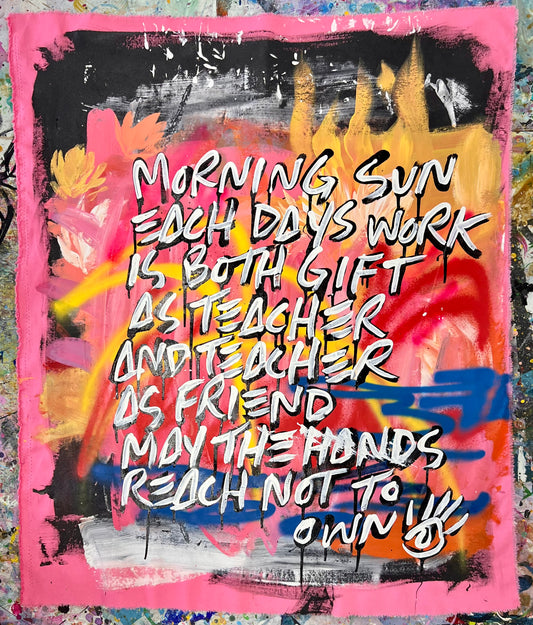 MORNING SUN
EACH DAYS WORK
IS BOTH GIFT
AS TEACHER
AND TEACHER
AS FRIEND
MAY THE HANDS
REACH NOT TO
OWN!